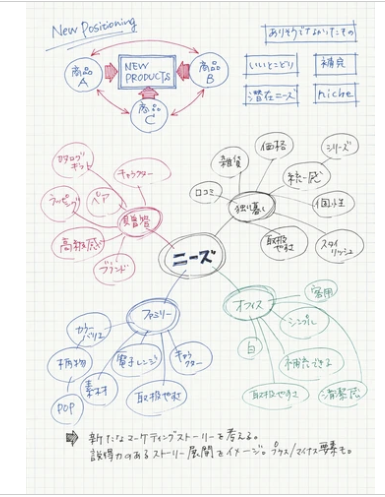 New Positioning
ありそうでなかったもの
商品A
NEW PRODUCTS
商品B
商品C
いいとこどり
補完
潜在ニーズ
niche
カタログギフト
キャラクター
ラッピング
ペア
高級感
ブランド
雑貨
価格
シリーズ
口コミ
独り暮し
統一感
個性
取扱やすさ
スタイリッシュ
ニーズ
ファミリー
カラーバリエ
柄物
素材
電子レンジ
キャラクター
取扱やすさ
POP
オフィス
客用
シンプル
白
補充できる
取扱やすさ
清潔感
新たなマーケティングストーリーを考える。
説得力のあるストーリー展開をイメージ。プラス/マイナス要素も。